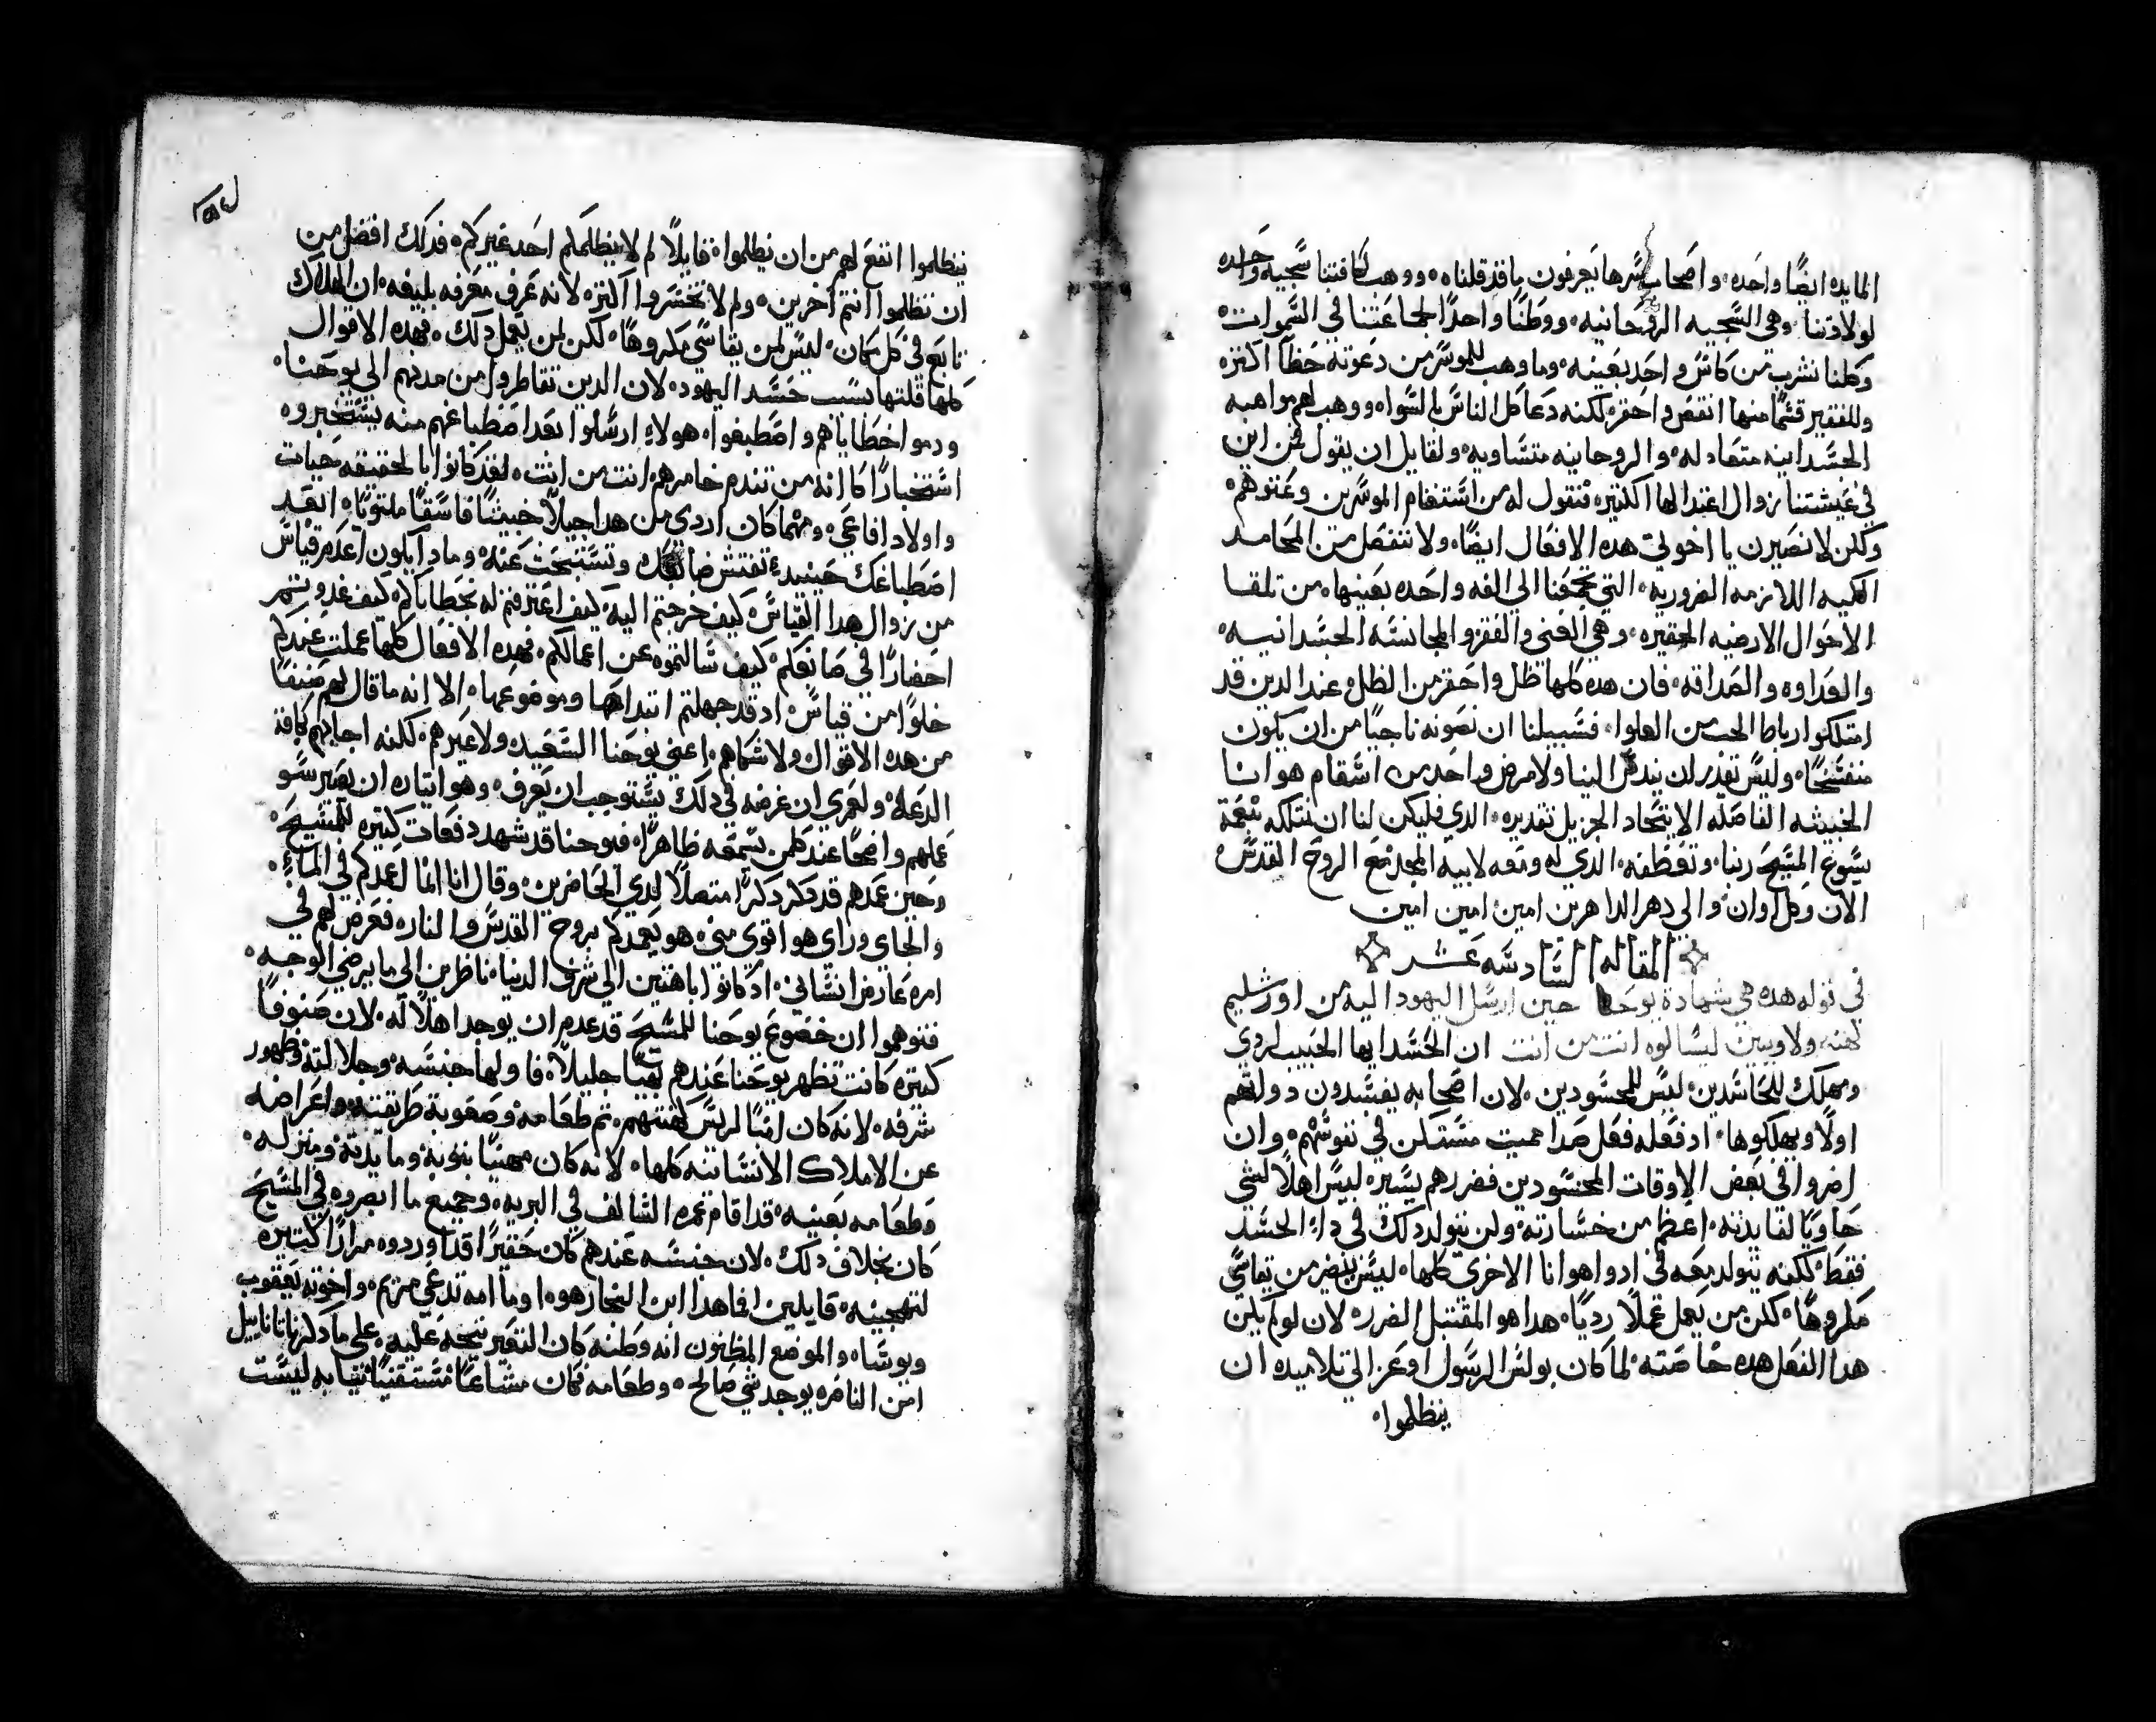 المايده ايضًا واحده، واصحاب سرها يعرفون ما قد قلناه، ووهب لكافتنا سجيه واحده
لولادتنا وهي السجيه الروحانيه، ووطنًا واحدًا لجماعتنا في السموات،
وكلنا نشرب من كاس واحد بعينه، وما وهب للموسر من دعوته حظًا اكتره
وللفقير قسمًا منها انقص واحقر، لكنه دعا كل الناس بالسواه ووهب لهم مواهبه
الجسدانيه متعادله، والروحانيه متساويه، ولقايل ان يقول فمن اين
في عيشتنا زوال اعتدالها الكتيره، فنقول له من استغنام الموسرين وعتوهم،
ولكن لا نصيرن يا اخوتي هده الافعال ايضًا، ولا ننفصل من المحامد
الكليه اللازمه الضروريه، التي تجمعنا الى الفه واحده بعينها، من تلقا
الاحوال الارضيه الحقيره، وهي الغنى والفقر والمجانسه الجسدانيه،
والعداوه والصداقه، فان هده كلها ظل واحقر من الظل، عند الدين قد
امتلكوا رباط الحب من العلوا، فسبيلنا ان نصونه ناجيًا من ان يكون
منفسخًا، وليس تقدر ان تندس الينا ولا مرض واحد من اسقام هوانا
الخبيثه الفاصله الاتحاد الجزيل تقديره، الدي فليكن لنا ان نمتلكه بنعمة
يسوع المسيح ربنا، وتعطفه، الدي له ومعه لابيه المجد مع الروح القدس
الان وكل اوان، والى دهر الداهرين امين، امين امين
المقاله السادسه عشر
في قوله هده هي شهادة يوحنا حين ارسل اليهود اليه من اورشليم
كهنه ولاويين ليسالوه انت من انت ان الحسد ايها الحبيب لردي
ومهلك للحاسدين، ليس للمحسودين، لان اصحابه يفسدون دواتهم
اولًا ويهلكوها، اد فعله فعل صدا مميت مستكن في نفوسهم، وان
اضروا في بعض الاوقات المحسودين فضررهم يسيره ليس اهلًا لشي
حاويًا لفايدته، اعظم من خسارته، ولن يتولد دلك في دا الحسد
فقط، لكنه يتولد معه في ادوا هوانا الاخرى كلها، ليس يضر من يقاسي
مكروهًا، لكن من يعمل عملًا رديًا، هدا هو المقتبل الضرره لان لو لم يكن
هدا الفعل هده خاصته لما كان بولس الرسول اوعز الى تلاميده ان
ينظلموا،
ينظلموا انفع لهم من ان يظلموا، قايلًا لم لا يظلمكم احد غيركم، فدلك افضل من
ان تظلموا انتم اخرين، ولم لا تخسروا اكتره لانه عرف معرفه بليغه، ان الهلاك
تابع في كل مكان، ليس لمن يقاسي مكروهًا، لكن لمن يعمل دلك، فهده الاقوال
كلها قلتها بسبب حسد اليهود، لان الدين تقاطروا من مدنهم الى يوحنا،
ودموا خطاياهم واصطبغوا، هولاء ارسلوا بعد اصطباغهم منه يستخبروه
استخبارًا كما انه من تندم خامرهم، انت من انت، لقد كانوا بالحقيقه حيات
واولاد افاعي، ومهما كان اردى من هدا جيلًا خبيثًا فاسقًا ملتويًا، ابعد
اصطباغك حينيد تفتش صابغك، وتستبحث عنه، وما دا يكون اعدم قياس
من زوال هدا القياس، كيف خرجتم اليه، كيف اعترفتم له بخطاياكم، كيف غدوتم
احضارًا في صابغكم، كيف سالتموه عن اعمالكم، فهده الافعال كلها عملت عندكم
خلوًا من قياس، اد قد جهلتم ابتداها وموضوعها، الا انه ما قال لهم صنفًا
من هده الاقوال ولا شماهم، اعني يوحنا السعيد، ولا عيرهم، لكنه اجابهم كافة
الدعه، ولعمري ان غرضه في دلك يستوجب ان يعرف، وهو ايثاره ان يصير سو
عملهم واضحًا عند كل من يسمعه ظاهرًا، فيوحنا قد شهد دفعات كتيره للمسيح،
وحين عمدهم قد دكر دكرًا متصلًا لدي الحاضرين، وقال انا انما اعمدكم في الماء،
والجاي وراي هو اقوى مني، هو يعمدكم بروح القدس والنار، فعرض لهم في
امره عارض انساني، اد كانوا باهتين الى شرف الدنيا، ناظرين الى ما يرضي الوجه،
فتوهموا ان خضوع يوحنا للمسيح قد عدم ان يوجد اهلًا له، لان صنوفًا
كتيره كانت تظهر يوحنا عندهم بهيًا جليلًا، فاولها جنسه وجلالته في ظهور
شرفه، لانه كان ابنًا لريس كهنتهم، ثم طعامه وصعوبة طريقته، واعراضه
عن الاملاك الانسانيه كلها، لانه كان مهنيًا بثوبه، ومايدته، ومنزله،
وطعامه بعينه، قد اقام عمره السالف في البريه، وجميع ما ابصروه في المسيح
كان بخلاف دلك، لان جنسه عندهم كان حقيرًا قد اوردوه مرارًا كتيره
لتهجينه، قايلين افما هدا ابن النجار هو، اوما امه تدعى مريم، واخوته يعقوب
ويوسا، والموضع المظنون انه وطنه كان التعير يتجه عليه، على ما دكرناه ناتاناييل
امن الناصره يوجد شي صالح، وطعامه كان مشاعًا مستقنيًا ثيابه ليست